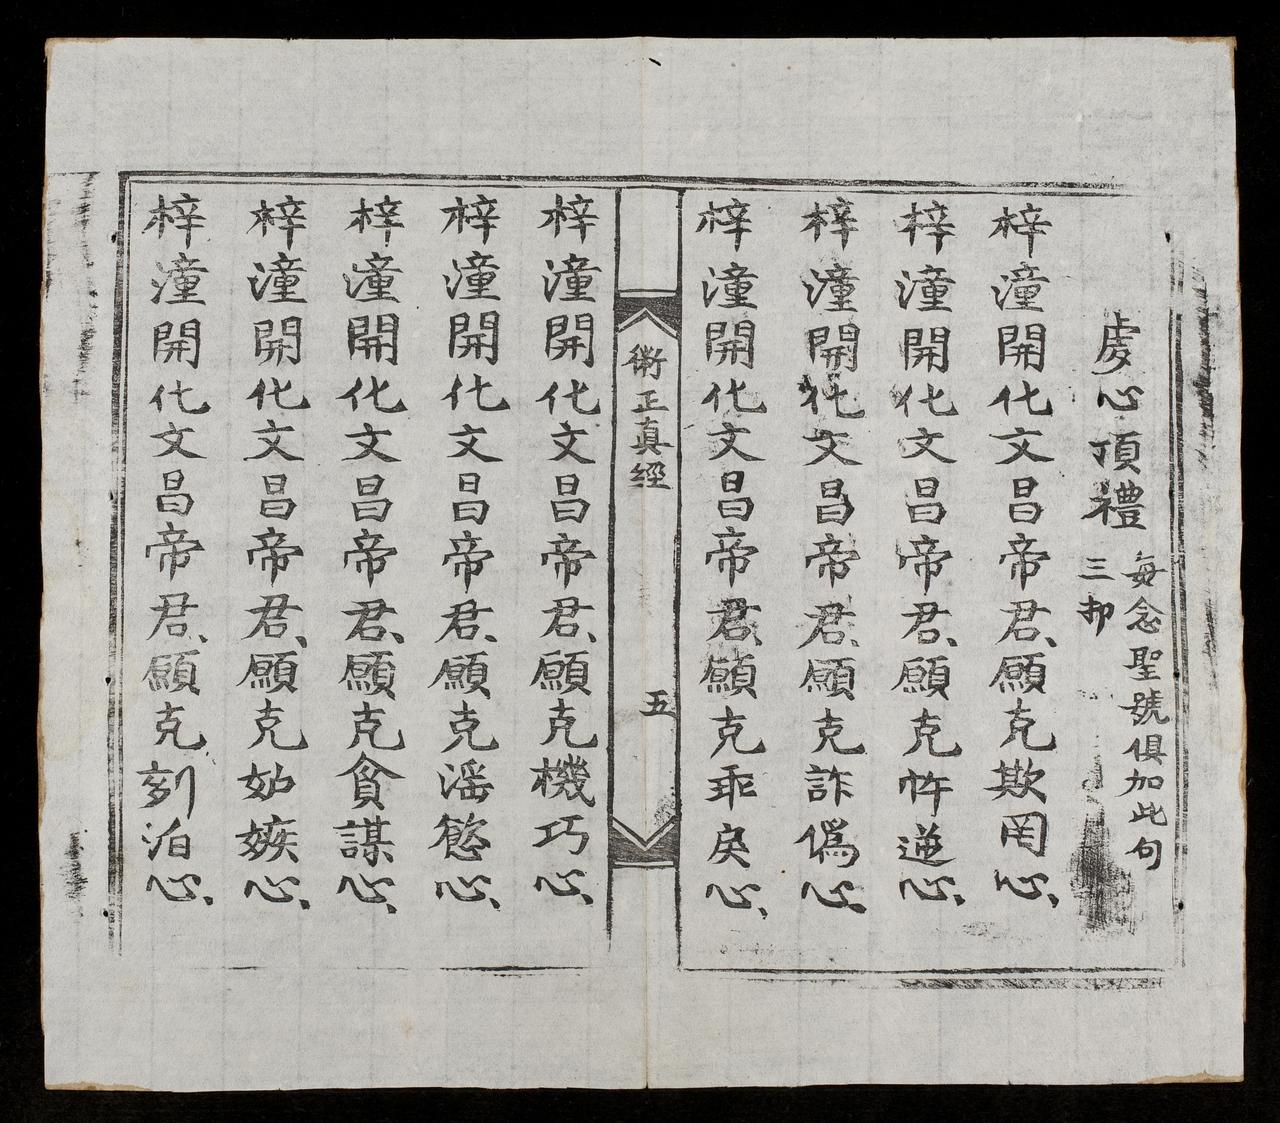 虔心頂禮 每念聖號俱加此句三卽
梓潼開化文昌帝君、願克欺罔心、
梓潼開化文昌帝君、願克忤逆心、
梓潼開化文昌帝君、願克詐僞心、
梓潼開化文昌帝君、願克乖戾心、
衛正真經 五
梓潼開化文昌帝君、願克機巧心、
梓潼開化文昌帝君、願克淫慾心、
梓潼開化文昌帝君、願克貪謀心、
梓潼開化文昌帝君、願克妒嫉心、
梓潼開化文昌帝君、願克刻泊心、